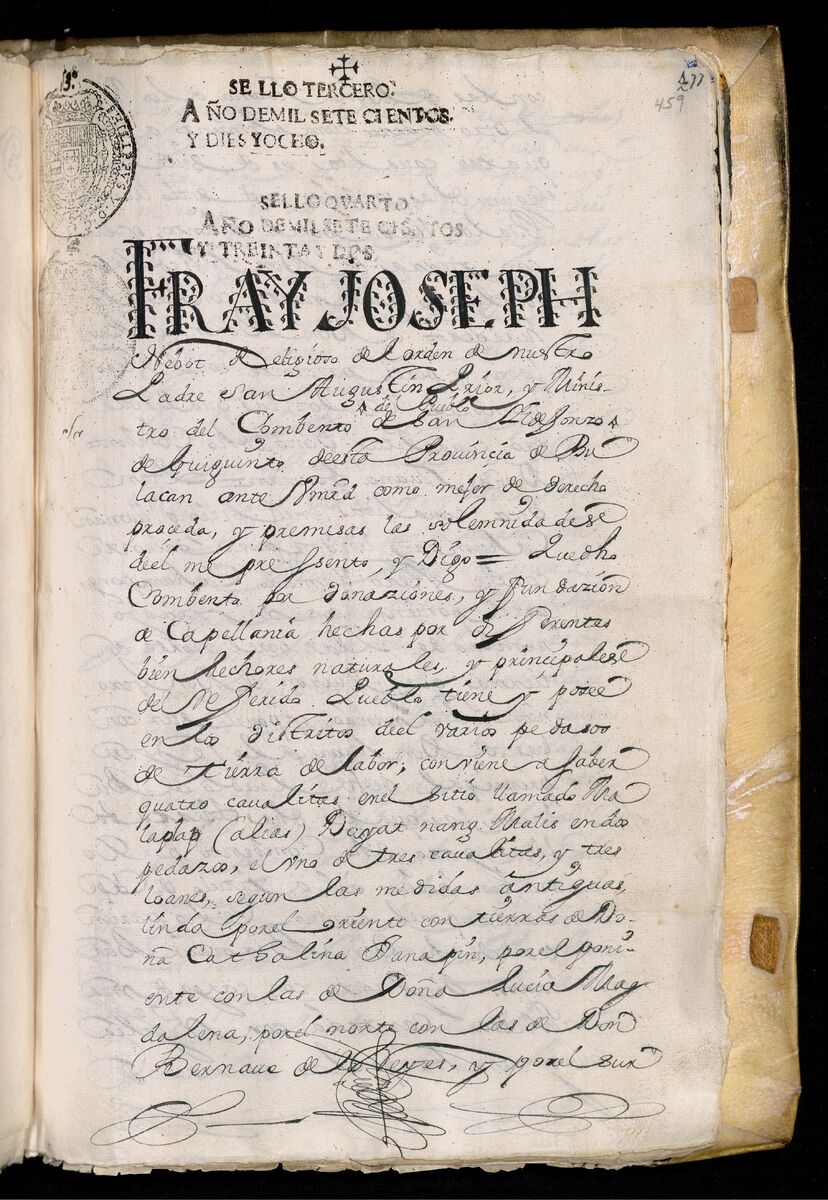 477
459
3º
SELLO TERCERO.
AÑO DEMIL SETECIENTOS.
Y DIESYOCHO.
SELLO QVARTO
AÑO DEMILSETECIENTOS
Y TREINTA Y DOS.
FRAY JOSEPH
Nebot Religioso del orden de nuestro
Padre San Augustin Prior, y Minis-
tro del Combento del Pueblo de San Ildefonzo
de Guiguinto deesta Provincia de Bu
lacan ante Vmrd como mejor de derecho
proceda, y premisas las solemnidades
deel me pressento, y Digo = Que dho
Combento por donaziones, y fundazion
de Capellania hechas por diferentes
bien hechores naturales, y principales
del Referido Pueblo tiene y posee
en los distritos deel varios pedasos
de tierra de labor, conviene a saber
quatro cavalitas enel sitio llamado Ma
lapap (alias) Dagat nang Malis endos
pedazos, el vno de tres cavalitas, y tres
loanes, segun las medidas antiguas,
linda porel oriente con tierras de Do-
ña Cathalina Panapin, porel poni-
ente con las de Doña Lucia Mag
dalena, porel norte con las de Don
Bernave de los Reyes, y porel sur